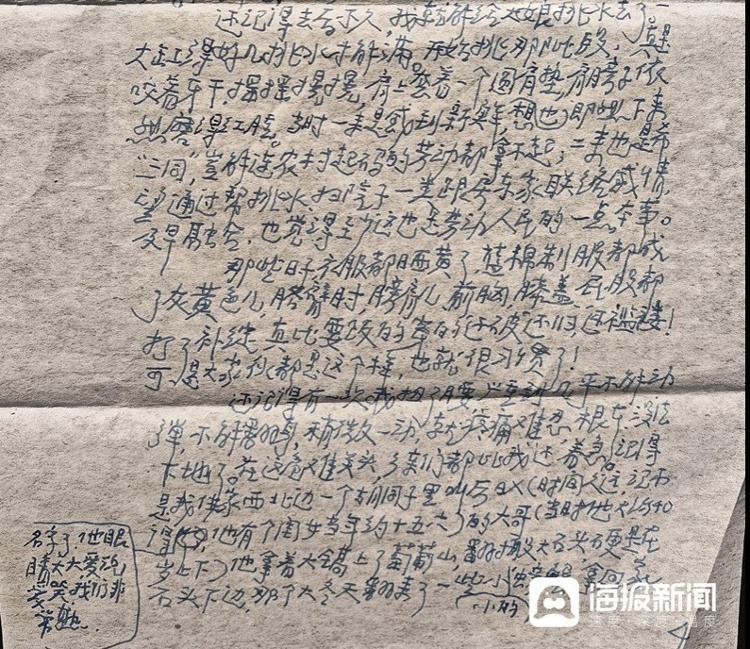 还记得去会不久，我就能给大娘挑水去了。
大缸得好几挑水才能满。开始挑那些段，真是
咬着牙干，摇摇摆摆，肩上垫着一个圆肩垫，肩膀子依
然磨得红肿。当时一来是感到新鲜，想
“三同”，岂能连农村起码的劳动都拿不起；二来也是希
望通过帮挑水扫院子一类跟房东家联络感情，
及早融合，也觉得至少这也是劳动人民的一点本事。
那些日子衣服都晒黄了，蓝棉制服都成
了灰黄色儿，胳臂肘，膀肩儿，前胸膝盖屁股都
打了补绽，真比要饭的穿的还破还旧还褴褛！
可是大家伙都是这个样，也就很习惯了！
还记得有一次我扭了腰，几乎不能动
了弹，不能翻身，稍微一动，就疼痛难忍，根本没法
下地了。在这为难关头，乡亲们都比我还着急。记得
是我住家西北边一个胡同子里叫（时间久远，记不
得了，他有个闺女当年约十五六）的大哥（当时他大约40
岁上下）他拿着大镐上了葡萄山，翻搬大石头，硬是在
石头下边，那个大冬天翻来了一些小蝎（小的）拿回家
名字了，他眼
睛大大，爱说
爱笑，我们非
常熟。
海报新闻
速度·深度·温度